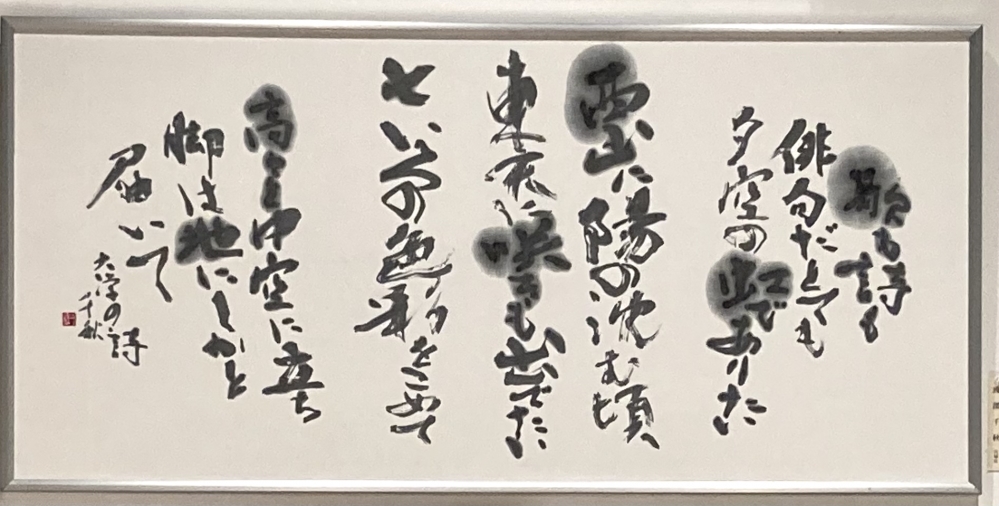 歌も詩も
俳句だとても
夕空の虹でありたい
西山に陽の沈む頃
東天に咲きも出でたい
七いろの色彩をこめて
高々と中空に立ち
脚は地にしかと
届いて
の詩
千秋